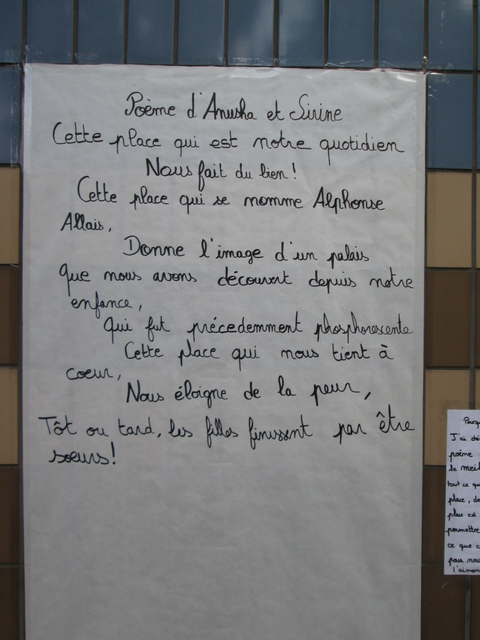 Poème d'Anusha et Sirine
Cette place qui est notre quotidien
Nous fait du bien!
Cette place qui se nomme Alphonse
Allais,
Donne l'image d'un palais
que nous avons découvert depuis notre
enfance,
qui fut précedemment phosphorescente
Cette place qui nous tient à
coeur,
Nous éloigne de la peur,
Tôt ou tard, les filles finissent par être
soeurs!
J'ai dé
poème
le meil
tout ce qu
place, de
plus est
permettre
ce que c
pour nou
l'aimon